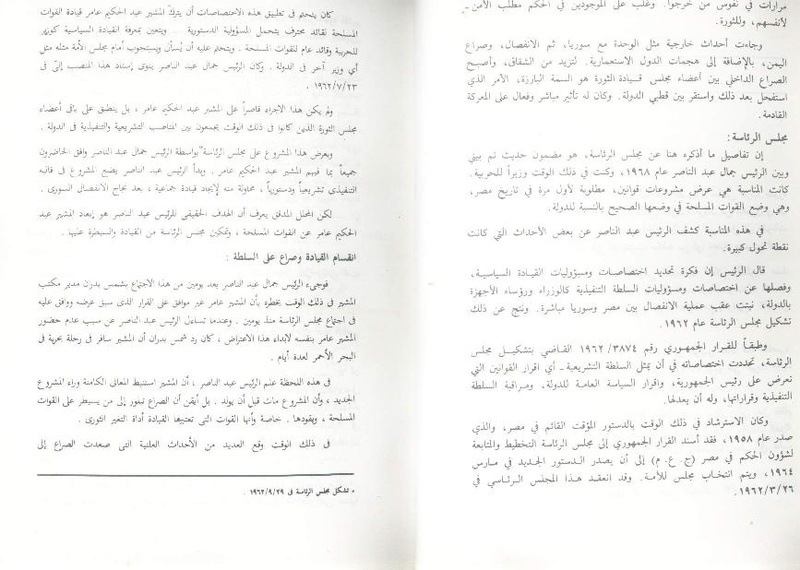 مرارات في نفوس من خرجوا. وغلب على الموجودين في الحكم مطلب الأمن-
لأنفسهم، وللثورة.
وجاءت أحداث خارجية مثل الوحدة مع سوريا، ثم الانفصال، وصراع
اليمن، بالإضافة إلى هجمات الدول الاستعمارية. لتزيد من الشقاق، وأصبح
الصراع الداخلي بين أعضاء مجلس قيادة الثورة هو السمة البارزة، الأمر الذي
استفحل بعد ذلك واستقر بين قطبي الدولة. وكان له تأثير مباشر وفعال على المعركة
القادمة.
مجلس الرئاسة:
إن تفاصيل ما أذكره هنا عن مجلس الرئاسة، هو مضمون حديث تم بيني
وبين الرئيس جمال عبد الناصر عام ١٩٦٨، وكنت في ذلك الوقت وزيراً للحربية.
كانت المناسبة هي عرض مشروعات قوانين، مطلوبة لأول مرة في تاريخ مصر،
وهي وضع القوات المسلحة في وضعها الصحيح بالنسبة للدولة.
في هذه المناسبة كشف الرئيس عبد الناصر عن بعض الأحداث التي كانت
نقطة تحول كبيرة.
قال الرئيس إن فكرة تحديد اختصاصات ومسؤوليات القيادة السياسية،
وفصلها عن اختصاصات ومسؤوليات السلطة التنفيذية كالوزراء ورؤساء الأجهزة
بالدولة، نبتت عقب عملية الانفصال بين مصر وسوريا مباشرة. ونتج عن ذلك
تشكيل مجلس الرئاسة عام ١٩٦٢.
وطبقاً للقرار الجمهوري رقم ٣٨٧٤/ ١٩٦٢ القاضي بتشكيل مجلس
الرئاسة، تحددت اختصاصاته في أن يمثل السلطة التشريعية- أي اقرار القوانين التي
تعرض على رئيس الجمهورية، واقرار السياسة العامة للدولة، ومراقبة السلطة
التنفيذية وقراراتها، وله أن يعدلها.
وكان الاسترشاد في ذلك الوقت بالدستور المؤقت القائم في مصر، والذي
صدر عام ١٩٥٨، فقد أسند القرار الجمهوري إلى مجلس الرئاسة التخطيط والمتابعة
لشؤون الحكم في مصر (ج. ع. م) إلى أن يصدر الدستور الجديد في مارس
١٩٦٤، ويتم انتخاب مجلس للأمة. وقد انعقد هذا المجلس الرئاسي في
١٩٦٢/٣/٢٦.
كان يتحتم في تطبيق هذه الاختصاصات أن يترك المشير عبد الحكيم عامر قيادة القوات
المسلحة لقائد محترف يتحمل المسؤولية الدستورية ... ويتعين بمعرفة القيادة السياسية كوزير
للحربية وقائد عام للقوات المسلحة. ويتحتم عليه أن يُسأل ويستجوب أمام مجلس الأمة مثله مثل
أي وزير آخر فى الدولة. وكان الرئيس جمال عبد الناصر ينوى إسناد هذا المنصب إلىّ فى
١٩٦٢/٧/٢٣.
ولم يكن هذا الاجراء قاصراً على المشير عبد الحكيم عامر، بل ينطبق على باقى أعضاء
مجلس الثورة الذين كانوا فى ذلك الوقت يجمعون بين المناصب التشريعية والتنفيذية فى الدولة.
وبعرض هذا المشروع على مجلس الرئاسة* بواسطة الرئيس جمال عبد الناصر وافق الحاضرون
جميعاً بما فيهم المشير عبد الحكيم عامر. وبدأ الرئيس عبد الناصر يضع المشروع فى قالبه
التنفيذى تشريعياً ودستورياً، محاولة منه لإيجاد قيادة جماعية، بعد نجاح الانفصال السورى.
لكن المحلل المدقق يعرف أن الهدف الحقيقى للرئيس عبد الناصر هو إبعاد المشير عبد
الحكيم عامر عن القوات المسلحة، وتمكين مجلس الرئاسة من القيادة والسيطرة عليها.
انقسام القيادة وصراع على السلطة:
فوجىء الرئيس جمال عبد الناصر بعد يومين من هذا الاجتماع بشمس بدران مدير مكتب
المشير فى ذلك الوقت يخطره بأن المشير عامر غير موافق على القرار الذى سبق عرضه ووافق عليه
فى اجتماع مجلس الرئاسة منذ يومين. وعندما تساءل الرئيس عبد الناصر عن سبب عدم حضور
المشير عامر بنفسه لابداء هذا الاعتراض، كان رد شمس بدران أن المشير سافر فى رحلة بحرية فى
البحر الأحمر لعدة أيام.
فى هذه اللحظة علم الرئيس عبد الناصر، أن المشير استنبط المعانى الكامنة وراء المشروع
الجديد، وأن المشروع مات قبل أن يولد. بل أيقن أن الصراع تبلور إلى من يسيطر على القوات
المسلحة، ويقودها. خاصة وأنها القوات التى تعتبرها القيادة أداة التغير الثورى.
فى ذلك الوقت وقع العديد من الأحداث العلنية التى صعدت الصراع إلى
* تشكل مجلس الرئاسة فى ١٩٦٢/٩/٢٩.